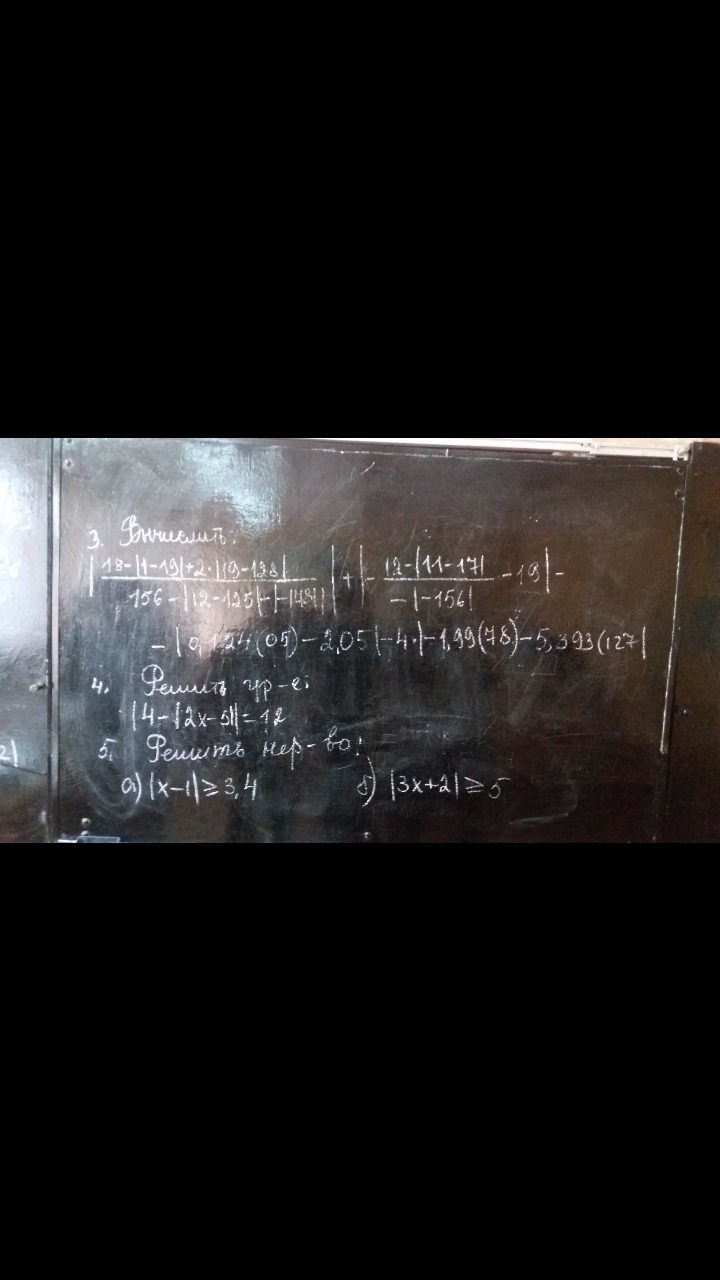 3. Вычислить:
| 18-|1-19|+2·|19-128| / 156-|12-125|-|-|48|| | + | - 12-|11-17| / -|-156| -19| -
- | 0,124(05) - 2,05 |-4·|-1,99(78) - 5,393(127|
4. Решить ур-е:
|4-|2x-5||=12
5. Решить нер-во:
а) |x-1| ≥ 3,4 б) |3x+2| ≥ 5
2|